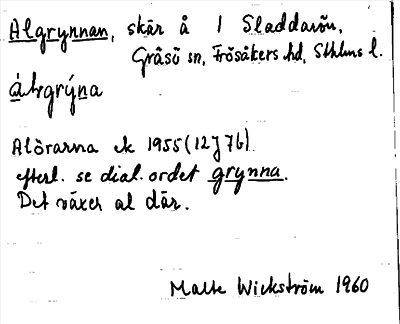 Algrynnan, skär å 1 Sladdarön,
Gräsö sn, Frösåkers hd, Sthlms l.
álgrýna
Alörarna ek 1955 (12J7b)
efterl. se dial. ordet grynna.
Det växer al där.
Malte Wickström 1960